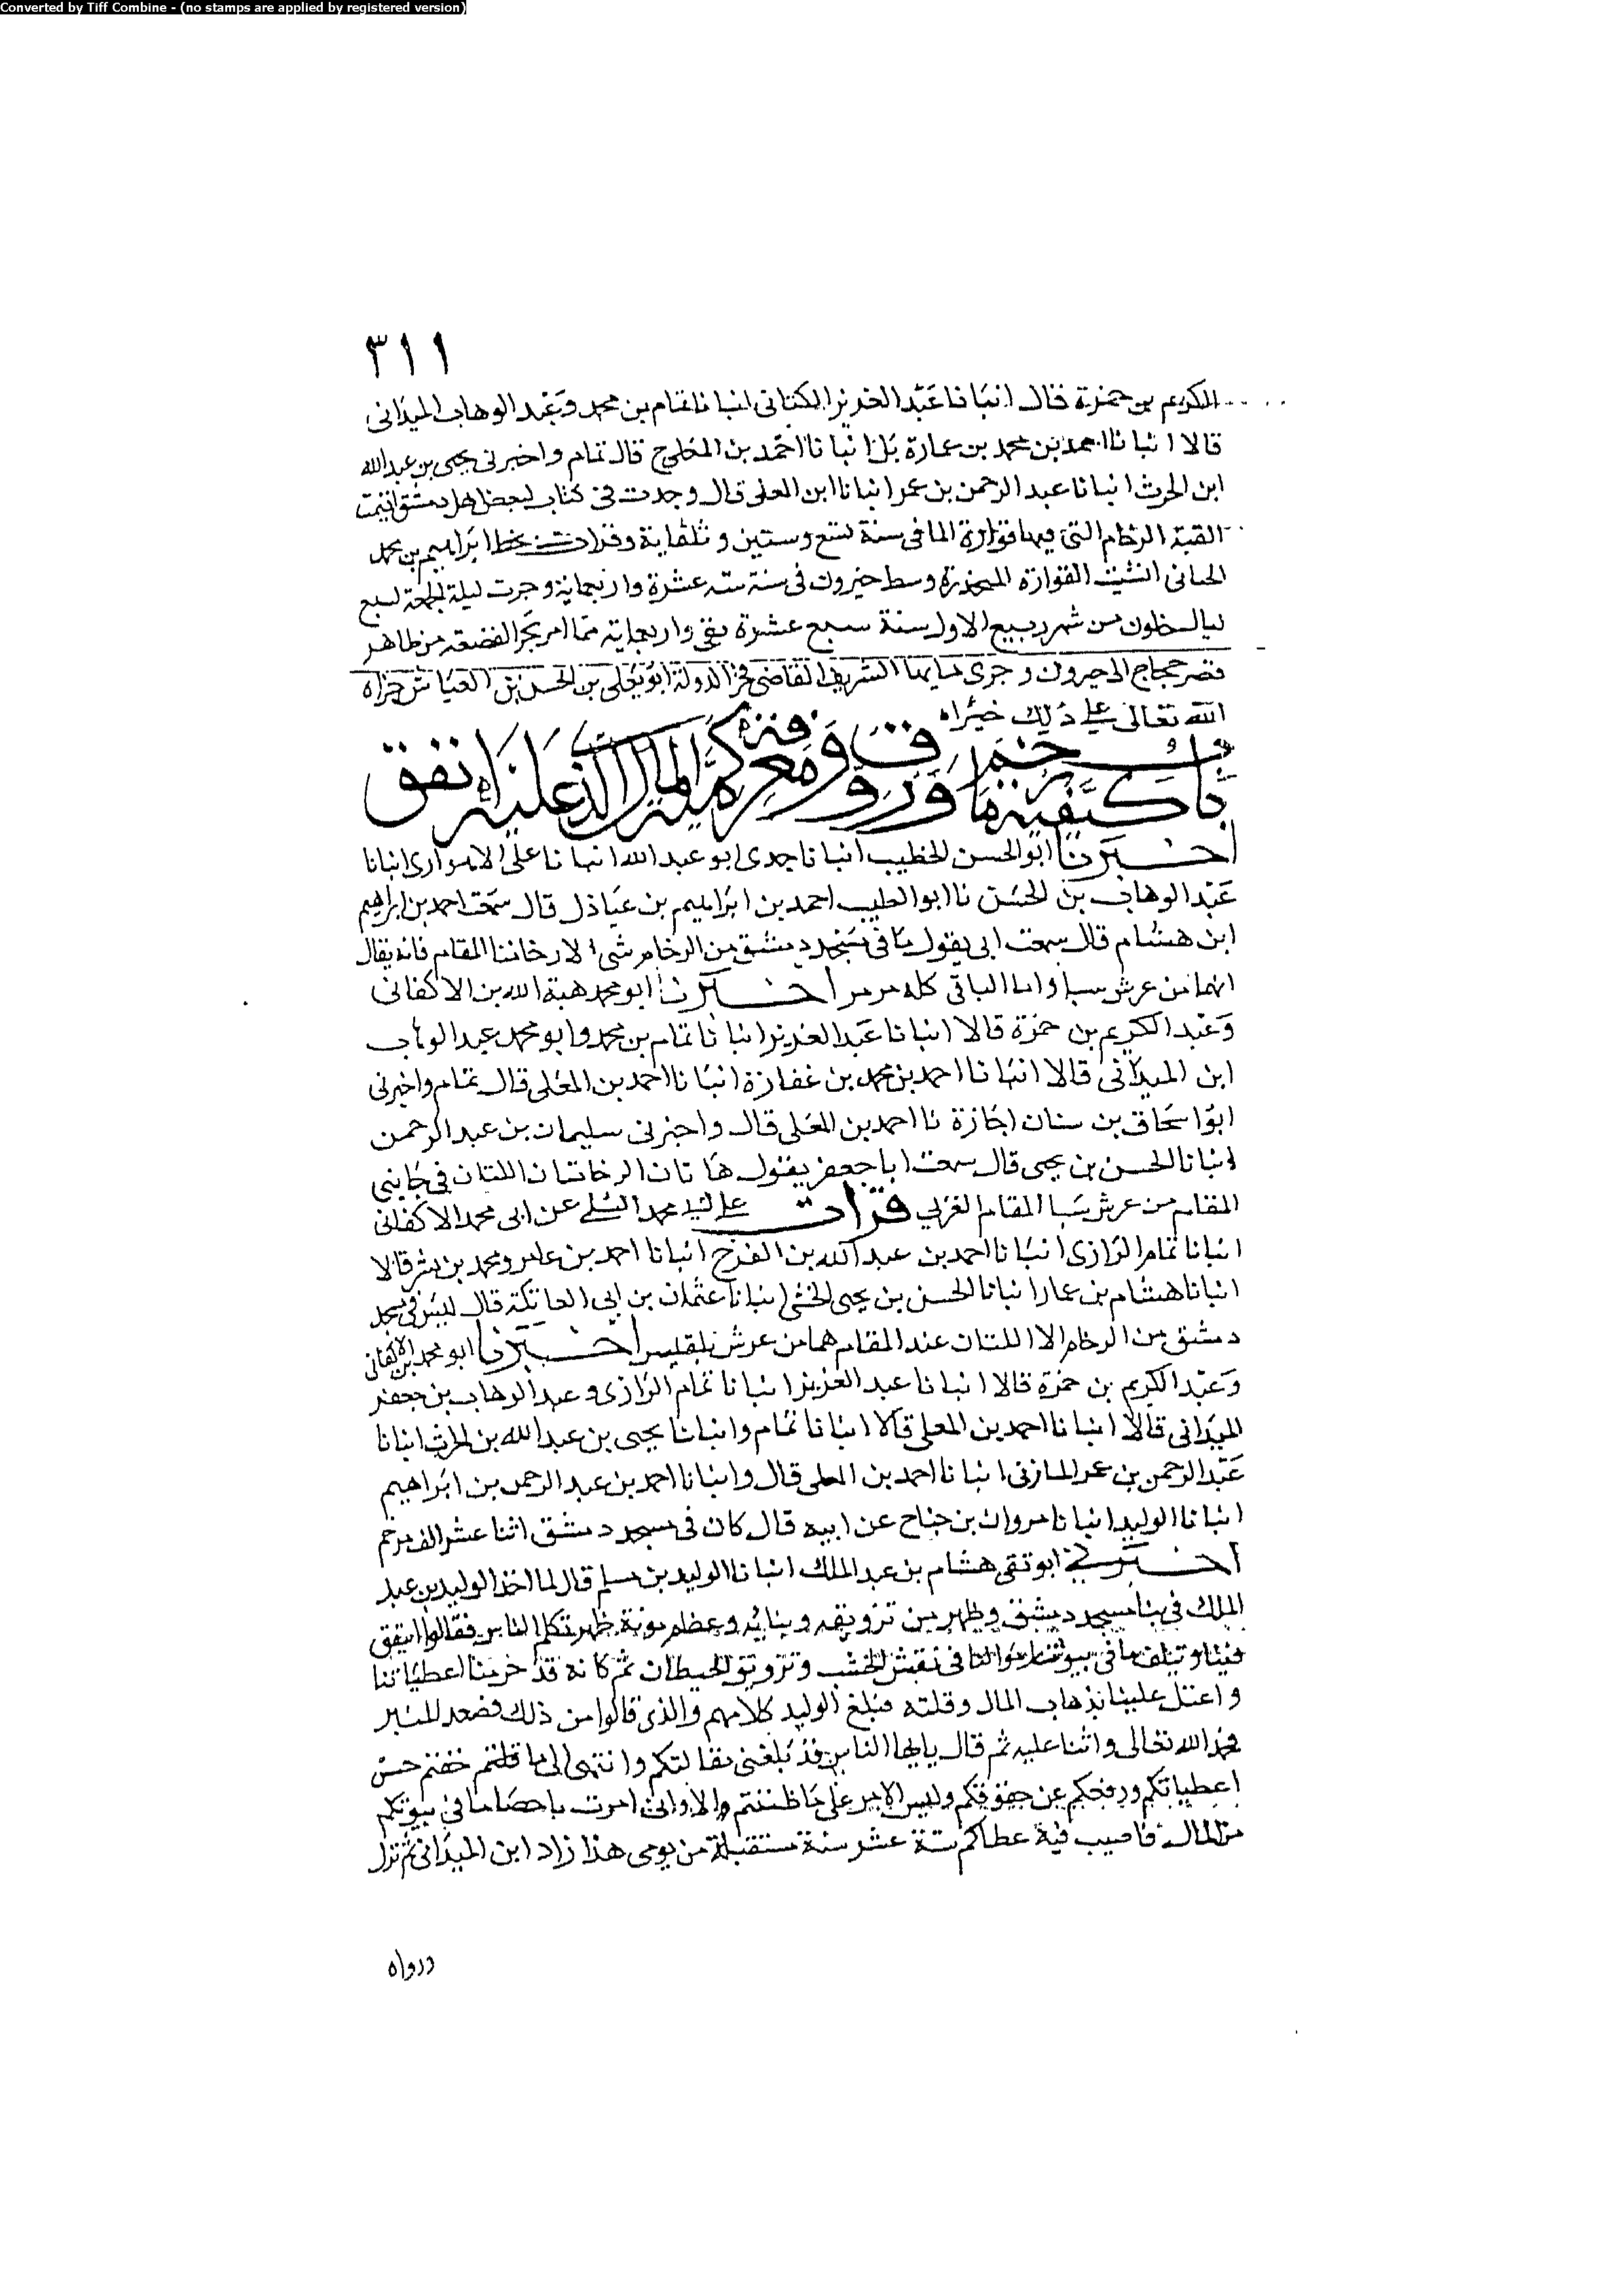 Converted by Tiff Combine - (no stamps are applied by registered version)
٣١١
الكريم بن حمزة قال انبانا عبد العزيز الكتانى انبانا تمام بن محمد وعبد الوهاب الميدانى
قالا انبانا احمد بن محمد بن عمارة انبانا احمد بن المعلى ح قال تمام واخبرنى يحيى بن عبد الله
ابن الحرث انبانا عبد الرحمن بن عمر انبانا ابن المعلى قال وجدت فى كتاب لبعض اهل دمشق
القبة الرخام التى فيها فوارة الما فى سنة تسع وستين وثلثماية وقرات بخط ابراهيم بن محمد
الحنانى انشيت الفوارة المنحدرة وسط جيرون فى سنة ستة عشرة واربعماية وجرت ليلة الجمعة لسبع
ليال خلون من شهر ربيع الاول سنة سبع عشرة واربعماية مما امر بجر القصعة من ظاهر
قصر حجاج الى جيرون وجرى مايها الشريف القاضى فخر الدولة ابو يعلى بن الحسن بن العباس جزاه
الله تعالى على ذلك خيرا
باب كيفية ما رخم وزوق ومعرفة كمية المال الذى عليه انفق
اخبرنا ابو الحسن الخطيب انبانا جدى ابو عبد الله انبانا على الاهوازى انبانا
عبد الوهاب بن الحسن نا ابو الطيب احمد بن ابراهيم بن عباذل قال سمعت احمد بن ابراهيم
ابن هشام قال سمعت ابى يقول ما فى مسجد دمشق من الرخام شى الا رخامتا المقام فانه يقال
انهما من عرش سبا واما الباقى كله مرمر اخبرنا ابو محمد هبة الله بن الاكفانى
وعبد الكريم بن حمزة قالا انبانا عبد العزيز انبانا تمام بن محمد وابو محمد عبد الوهاب
ابن الميدانى قالا انبانا احمد بن محمد بن عمارة انبانا احمد بن المعلى قال تمام واخبرنى
ابو اسحاق بن سنان اجازة نا احمد بن المعلى قال واخبرنى سليمان بن عبد الرحمن
انبانا الحسن بن يحيى قال سمعت ابا جعفر يقول هاتان الرخامتان اللتان فى جانبى
المقام من عرش سبا المقام الغربى قرات على محمد السلمى عن ابى محمد الاكفانى
انبانا تمام الرازى انبانا احمد بن عبد الله بن الفرج انبانا احمد بن عامر ومحمد بن بشر قالا
انبانا هشام بن عمار انبانا الحسن بن يحيى الخشنى انبانا عثمان بن ابى العاتكة قال ليس فى مسجد
دمشق من الرخام الا اللتان عند المقام هما من عرش بلقيس اخبرنا ابو محمد بن الاكفانى
وعبد الكريم بن حمزة قالا انبانا عبد العزيز انبانا تمام الرازى وعبد الوهاب بن جعفر
الميدانى قالا انبانا احمد بن المعلى قالا انبانا تمام وانبانا يحيى بن عبد الله بن الحرث انبانا
عبد الرحمن بن عمر المازنى انبانا احمد بن المعلى قال وانبانا احمد بن عبد الرحمن بن ابراهيم
انبانا الوليد انبانا مروان بن جناح عن ابيه قال كان فى مسجد دمشق اثنا عشر الف مرخم
اخبرنى ابو تقى هشام بن عبد الملك انبانا الوليد بن مسلم قال لما اخذ الوليد بن عبد
الملك فى بنا مسجد دمشق وظهر من تزويقه وبنائه وعظم مونة ظهر تكلم الناس فقالوا انفق
فيئنا وتيلف ما فى بيوت اموالنا فى نقش الخشب وتزويق الحيطان ثم كانه قد حرمنا اعطياتنا
واعتل علينا بذهاب المال وقلته فبلغ الوليد كلامهم والذى قالوا من ذلك فصعد المنبر
فحمد الله تعالى واثنا عليه ثم قال يايها الناس قد بلغنى مقالتكم وانتهى الى ما قلتم خفتم حبس
اعطياتكم ودفعكم عن حقوقكم وليس الامر على ما ظننتم الا وانى امرت باحصا ما فى بيوتكم
من المال فاصيب فيه عطاكم ستة عشر سنة مستقبلة من يومى هذا زاد ابن الميدانى ثم نزل
ورواه